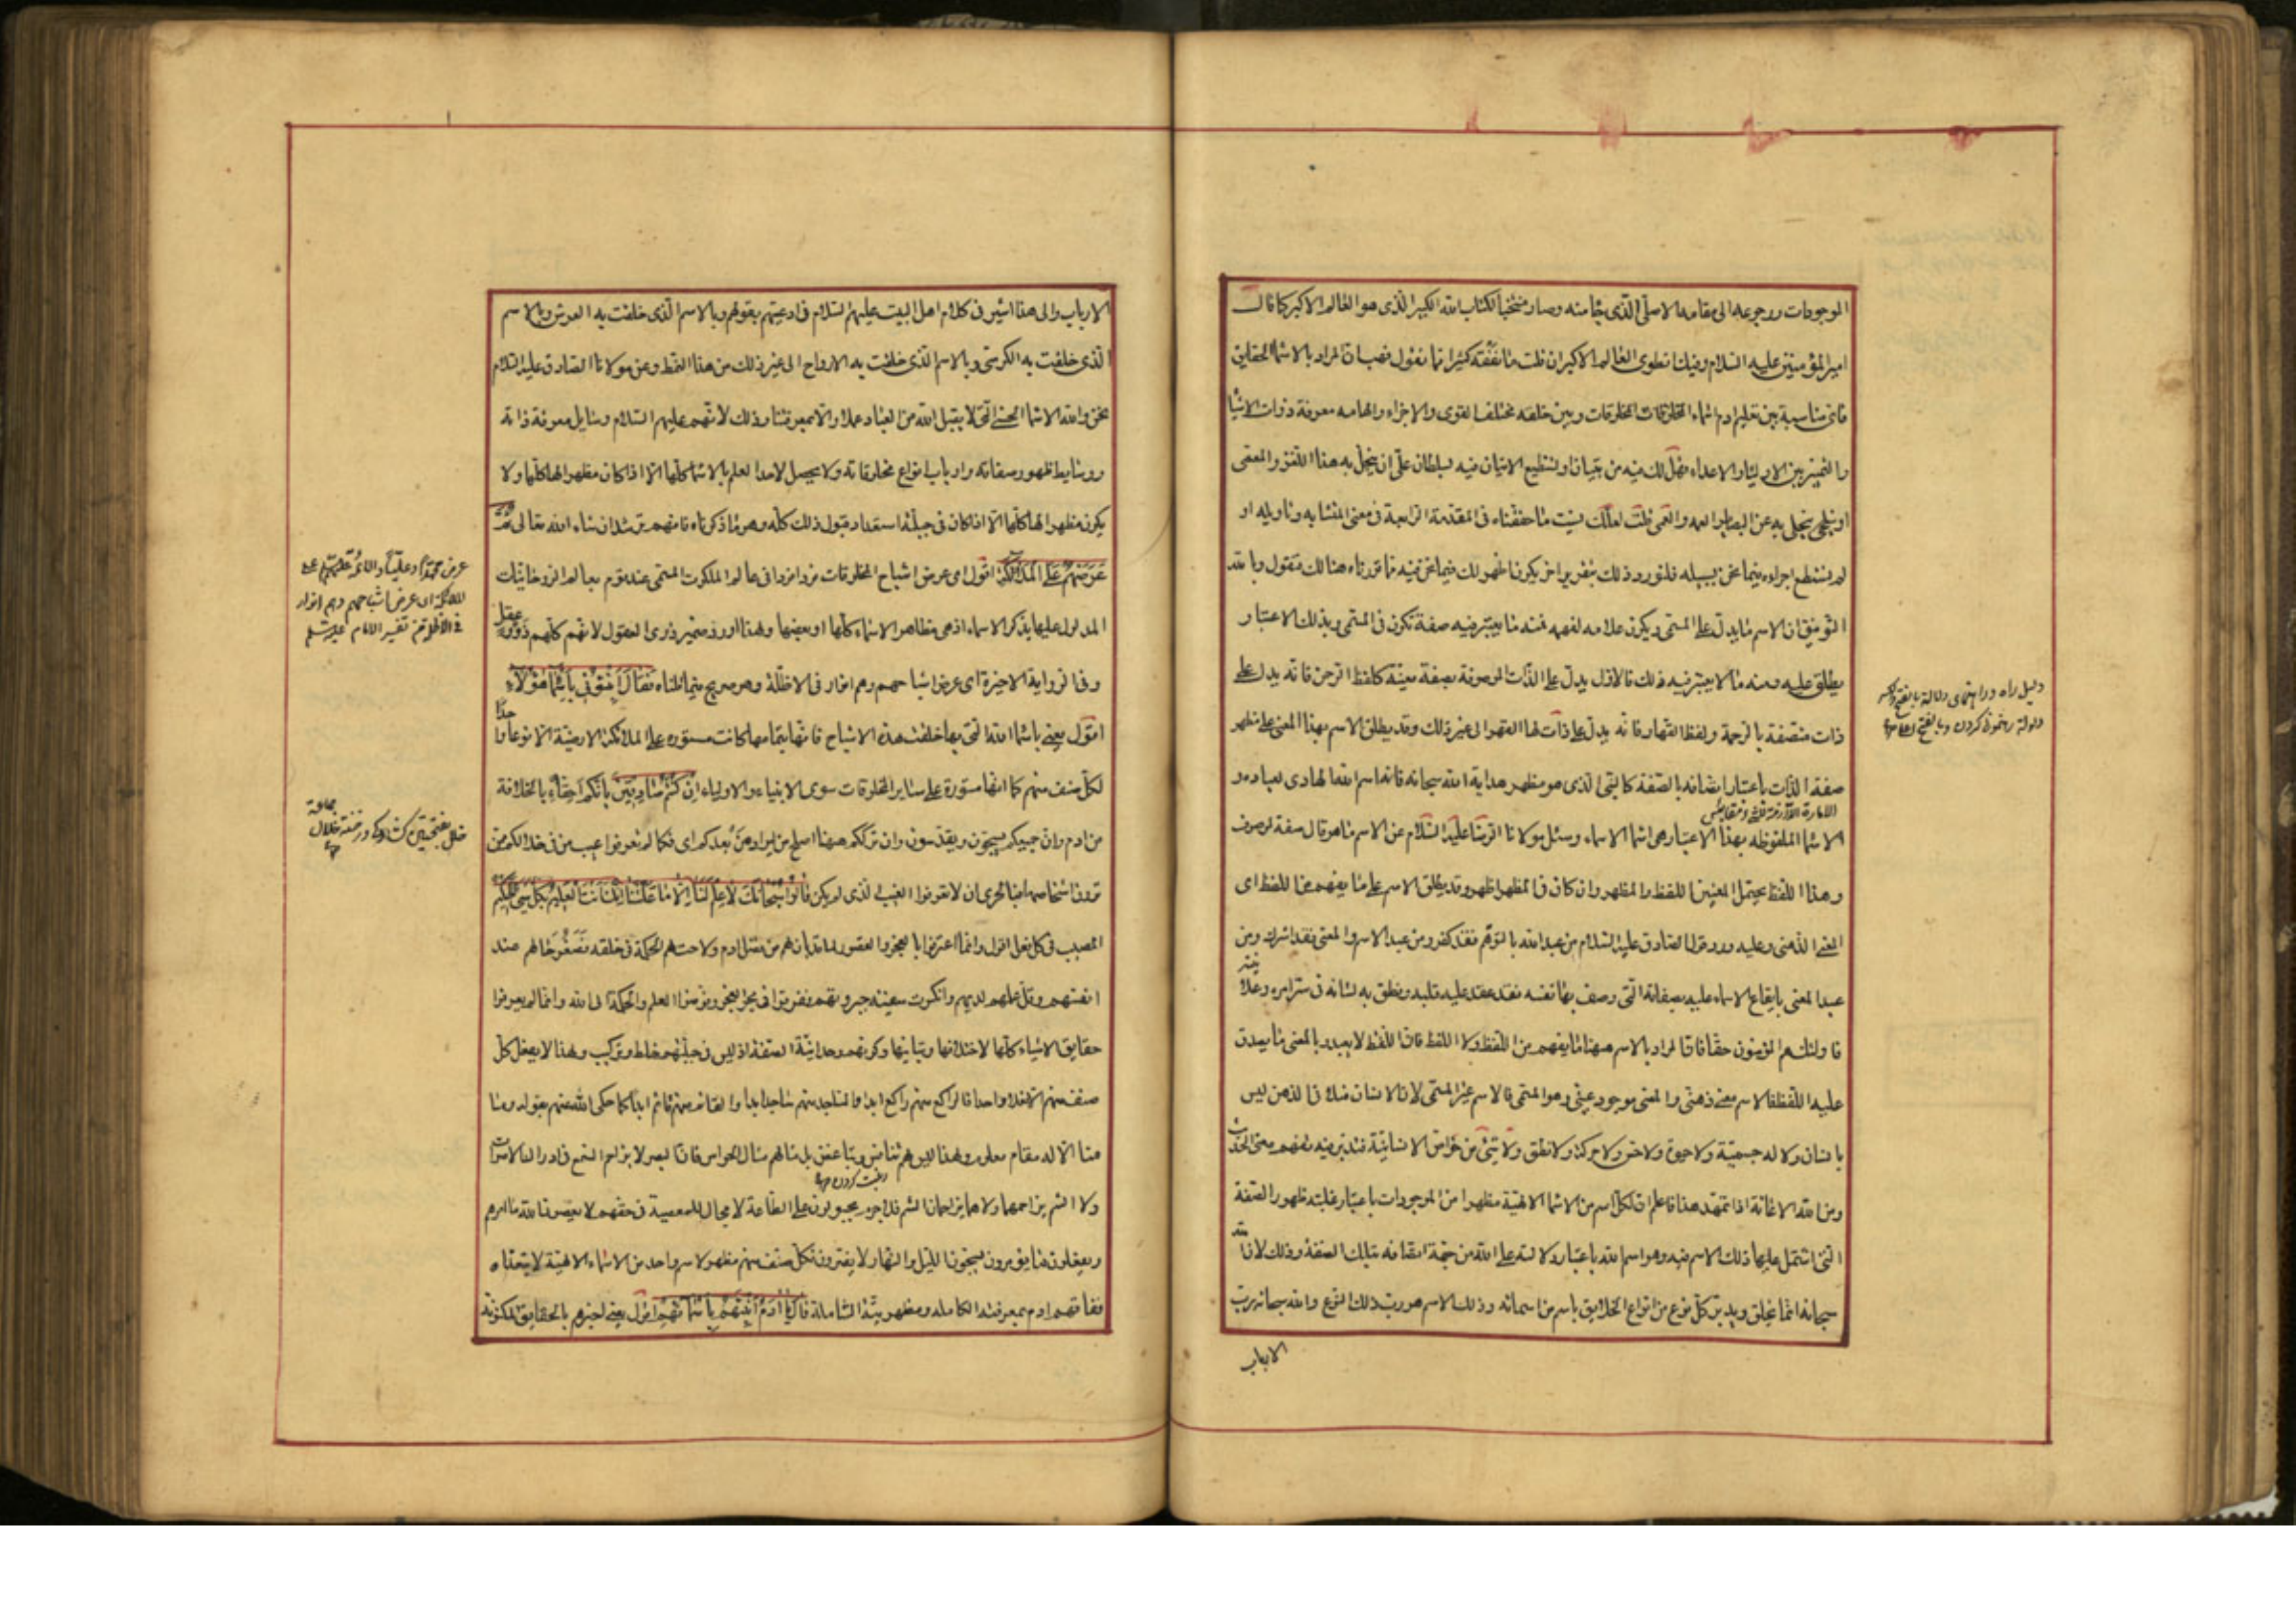 الموجودات ورجوعه الى مقامه الاصلى الذى جاء منه وصار منتخبا لكتاب الله الكبير الذى هو العالم الاكبر كما قال
امير المؤمنين عليه السلام وفيك انطوى العالم الاكبر ان قلت ما نفقه كثيرا مما تقول فهب ان المراد بالاسماء الحقايق
فاى مناسبة بين تعليم ادم اسماء المخلوقات وبين خلقه مختلف القوى والاجزاء والهامه معرفة ذوات الاشيا
والتمييز بين الاولياء والاعداء فهل لك فيه من بتيان او تستطيع الاتيان فيه بسلطان على ان ينحل به هذا اللغز والمعمى
او بثلجى ينجلى به عن البصاير العمه والعمى قلت لعلك نسيت ما حققناه فى المقدمة الرابعة فى معنى المتشابه وتاويله او
لم تستطع اجراءه فيما نحن بسبيله فلنورد ذلك بتقرير اخر يكون اظهر لك فيما نحن فيه مما قررناه هنالك فنقول وبالله
التوفيق ان الاسم ما يدل على المسمى ويكون علامة لفهمه فمنه ما يعتبر فيه صفة تكون فى المسمى وبذلك الاعتبار
يطلق عليه ومنه ما لا يعتبر فيه ذلك فالاول يدل على الذات الموصوفة بصفة معينة كلفظ الرحمن فانه يدل على
ذات متصفة بالرحمة ولفظ القهار فانه يدل على ذات لها القهر الى غير ذلك وقد يطلق الاسم بهذا المعنى على مظهر
صفة الذات باعتبار اتصافه بالصفة كالنبى الذى هو مظهر هداية الله سبحانه فانه اسم الله الهادى لعباده و
الاسماء الملفوظه بهذا الاعتبار هى اسماء الاسماء وسئل مولانا الرضا عليه السلام عن الاسم ما هو قال صفة لموصوف
وهذا اللفظ يحتمل المعنيين اللفظ والمظهر وان كان فى المظهر اظهر وقد يطلق الاسم على ما يفهم من اللفظ اى
المعنى الذهنى وعليه ورد قول الصادق عليه السلام من عبد الله بالتوهم فقد كفر ومن عبد الاسم والمعنى فقد اشرك ومن
عبد المعنى بايقاع الاسماء عليه بصفاته التى وصف بها نفسه فعقد عليه قلبه ونطق به لسانه فى سراير امره وعلا
نيته
فاولئك هم المؤمنون حقا فان المراد بالاسم ههنا ما يفهم من اللفظ ولا اللفظ فان اللفظ لا يعبد وبالمعنى ما يصدق
عليه اللفظ فالاسم معنى ذهنى والمعنى موجود عينى وهو المسمى فالاسم غير المسمى لان الانسان مثلا فى الذهن ليس
بانسان ولا له جسمية ولا حيوة ولا حس ولا حركة ولا نطق ولا شئ من خواص الانسانية فتدبر فيه تفهم معنى الحديث
ومن الله الاعانة اذا تمهد هذا فاعلم ان لكل اسم من الاسماء الالهية مظهرا من الموجودات باعتبار غلبة ظهور الصفة
التى اشتمل عليها ذلك الاسم فيه وهو اسم الله باعتبار دلالته على الله من جهة اتصافه بتلك الصفة وذلك لان الله
سبحانه انما يخلق ويدبر كل نوع من انواع الخلايق باسم من اسمائه وذلك الاسم هو رب ذلك النوع والله سبحانه رب
الارباب
الارباب والى هذا اشير فى كلام اهل البيت عليهم السلام فى ادعيتهم بقولهم وبالاسم الذى خلقت به العرش وبالاسم
الذى خلقت به الكرسى وبالاسم الذى خلقت به الارواح الى غير ذلك من هذا النمط وعن مولانا الصادق عليه السلام
نحن والله الاسماء الحسنى التى لا يقبل الله من العباد عملا الا بمعرفتنا وذلك لانهم عليهم السلام وسايل معرفة ذاته
ووسايط ظهور صفاته وارباب انواع مخلوقاته ولا يحصل لاحد العلم بالاسماء كلها الا اذا كان مظهرا لها كلها ولا
يكون مظهرا لها كلها الا اذا كان فى جبلته استعداد قبول ذلك كله وهو ما ذكرناه فافهم ترشد ان شاء الله تعالى ثم
عرضهم على الملائكة اقول اى عرض اشباح المخلوقات فردا فردا فى عالم الملكوت المسمى عند قوم بعالم الروحانيات
المدلول عليها بذكر الاسماء اذ هى مظاهر الاسماء كلها او بعضها ولهذا اورد ضمير ذوى العقول لانهم كلهم ذوو عقل
وفى الرواية الاخيرة اى عرض اشباحهم وهم انوار فى الاظلة وهو صريح فيما قلناه فقال انبئونى باسماء هؤلاء
اقول يعنى باسماء الله التى بها خلقت هذه الاشباح فانها بتمامها كانت مستورة على الملائكة الارضية الا نوعا واحدا
لكل صنف منهم كما انها مستورة على ساير المخلوقات سوى الانبياء والاولياء ان كنتم صادقين بانكم احقاء بالخلافة
من ادم وان جميعكم تسبحون وتقدسون وان ترككم ههنا اصلح من ايراد من بعدكم اى فكما لم تعرفوا غيب من فى خلالكم ممن
ترون اشخاصها فبالحرى ان لا تعرفوا الغيب الذى لم يكن قالوا سبحانك لا علم لنا الا ما علمتنا انك انت العليم بكل شئ الحكيم
المصيب فى كل فعل اقول وانما اعترفوا بالعجز والقصور لما قد بان لهم من فضل ادم ولاحت لهم الحكمة فى خلقه فصغر حالهم عند
انفسهم وقل علمهم لديهم وانكسرت سفينة جبروتهم فغرقوا فى بحر العجز وفوضوا العلم والحكمة الى الله وانما لم يعرفوا
حقايق الاشياء كلها لاختلافها وتباينها وكونهم وحدانية الصفة اذ ليس فى جبلتهم خلط وتركيب ولهذا لا يفعل كل
صنف منهم الا فعلا واحدا فالراكع منهم راكع ابدا والساجد منهم ساجد ابدا والقائم منهم قائم ابدا كما حكى الله عنهم بقوله وما
منا الا له مقام معلوم ولهذا ليس لهم تنافس وتباغض بل مثالهم مثال الحواس فان البصر لا يزاحم السمع فى ادراك الاصوات
ولا الشم يزاحمهما ولا هما يزاحمان الشم فلا جرم مجبولون على الطاعة لا مجال للمعصية فى حقهم لا يعصون الله ما امرهم
ويفعلون ما يؤمرون يسبحون الليل والنهار لا يفترون فكل صنف منهم مظهر لاسم واحد من الاسماء الالهية لا يتعداه
ففاقهم ادم بمعرفته الكاملة ومظهريته الشاملة قال يا ادم انبئهم باسمائهم اقول يعنى اخبرهم بالحقايق المكنونة
عرض محمدا وعليا والائمة عليهم السلام على
الملائكة اى عرض اشباحهم وهم انوار
فى الاظلة من تفسير الامام عليه السلام